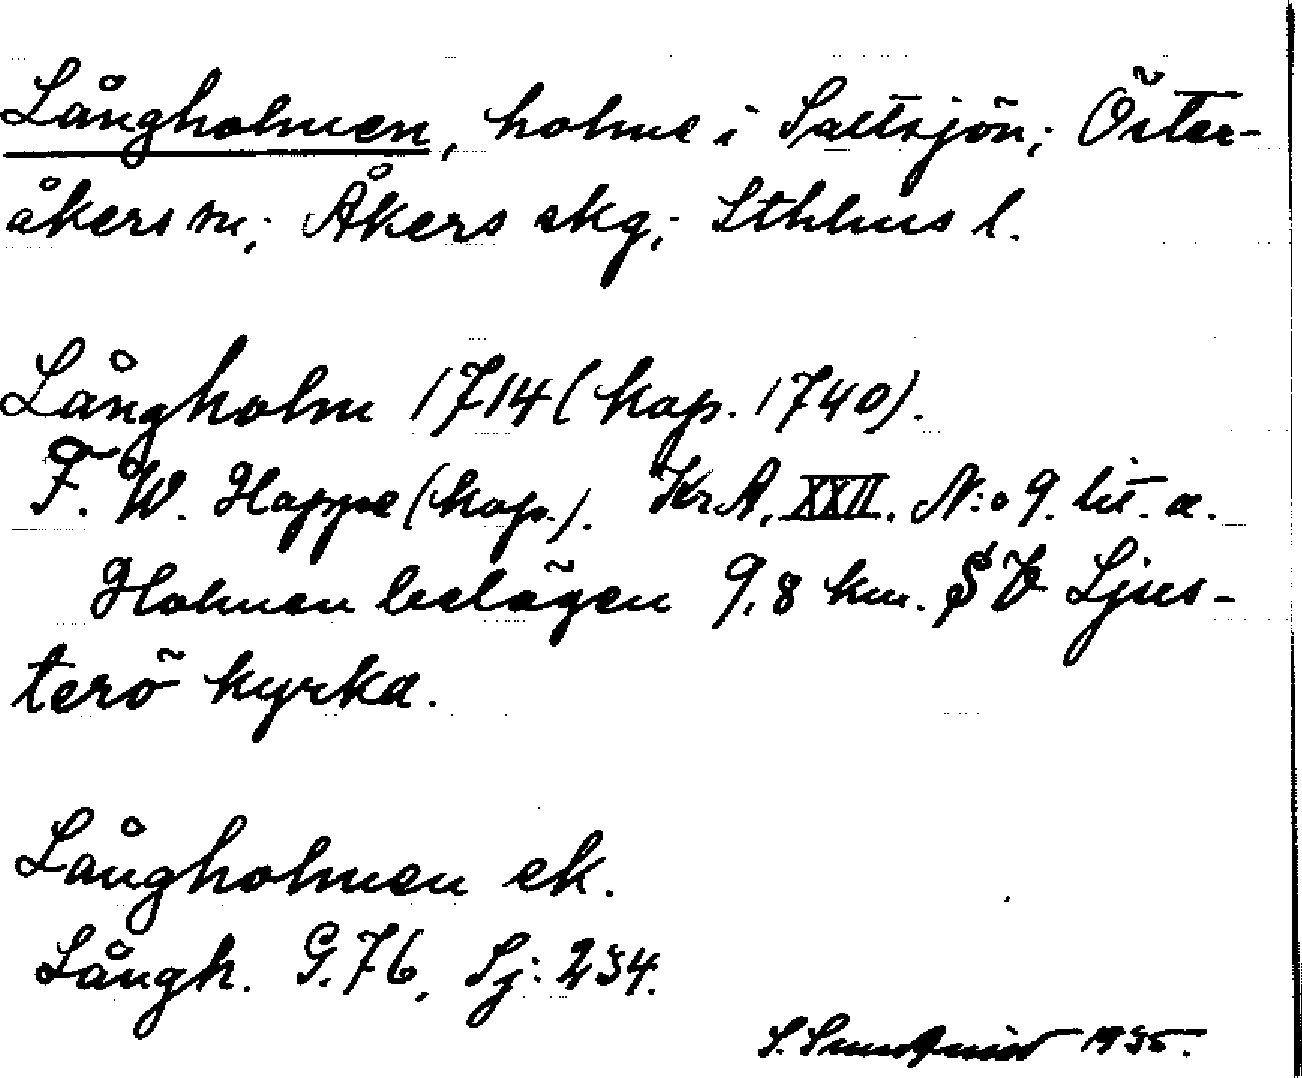 Långholmen, holme i Saltsjön; Öster-
åkers sn; Åkers skg; Sthlms l.
Långholm 1714 (kop. 1740).
F. W. Hoppe (kop.). Kr.A. XXII. N:o 9. lit. a.
Holmen belägen 9,8 km. S V Ljus-
terö kyrka.
Långholmen ek.
Långh. G. 76, Sj: 234.
S. Sundqvist 1935.